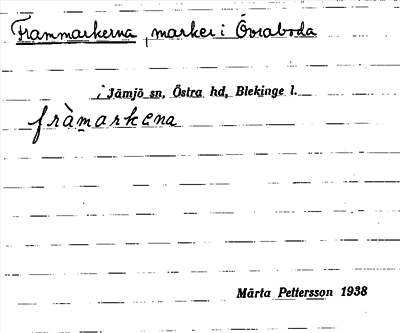 Frammarkerna, marker i Övraboda
i Jämjö sn, Östra hd, Blekinge l.
fràmarkena
Märta Pettersson 1938